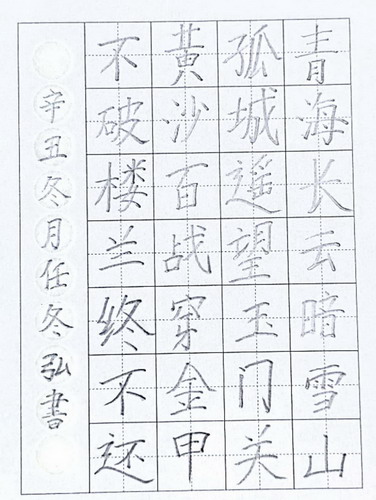 青海长云暗雪山
孤城遥望玉门关
黄沙百战穿金甲
不破楼兰终不还
辛丑冬月任冬弘書